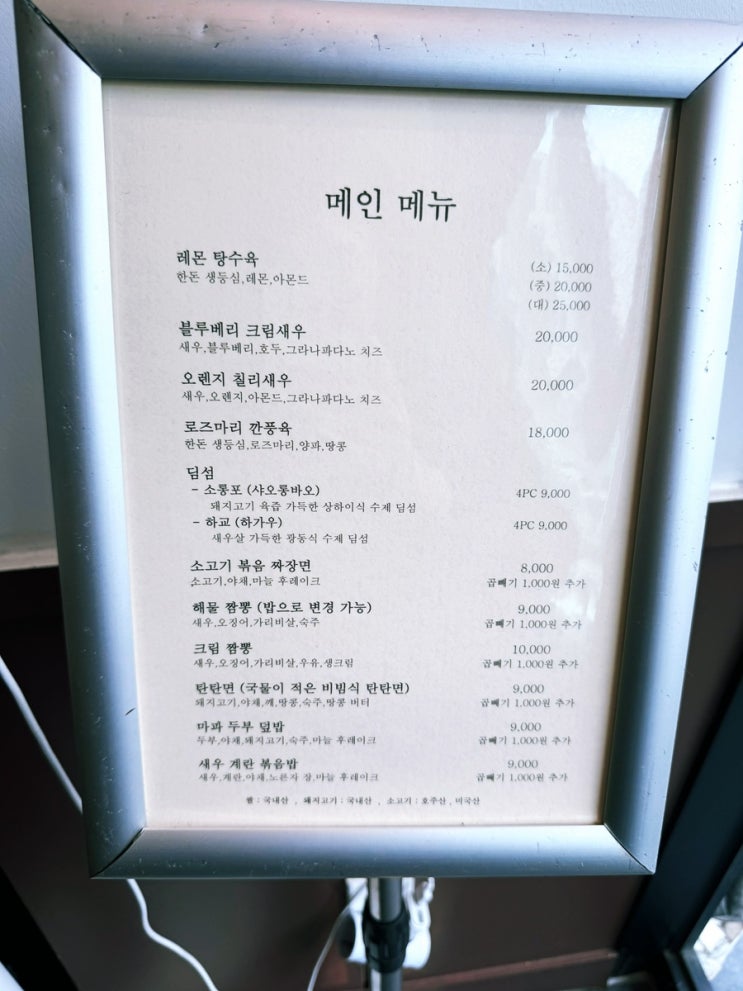 메인 메뉴
레몬 탕수육
한돈 생등심,레몬,아몬드
(소) 15,000
(중) 20,000
(대) 25,000
블루베리 크림새우 20,000
새우,블루베리,호두,그라나파다노 치즈
오렌지 칠리새우 20,000
새우,오렌지,아몬드,그라나파다노 치즈
로즈마리 깐풍육 18,000
한돈 생등심,로즈마리,양파,땅콩
딤섬
- 소롱포 (샤오롱바오) 4PC 9,000
돼지고기 육즙 가득한 상하이식 수제 딤섬
- 하교 (하가우) 4PC 9,000
새우살 가득한 광동식 수제 딤섬
소고기 볶음 짜장면 8,000
소고기,야채,마늘 후레이크 곱빼기 1,000원 추가
해물 짬뽕 (밥으로 변경 가능) 9,000
새우,오징어,가리비살,숙주 곱빼기 1,000원 추가
크림 짬뽕 10,000
새우,오징어,가리비살,우유,생크림 곱빼기 1,000원 추가
탄탄면 (국물이 적은 비빔식 탄탄면) 9,000
돼지고기,야채,깨,땅콩,숙주,땅콩 버터 곱빼기 1,000원 추가
마파 두부 덮밥 9,000
두부,야채,돼지고기,숙주,마늘 후레이크 곱빼기 1,000원 추가
새우 계란 볶음밥 9,000
새우,계란,야채,노른자 장,마늘 후레이크 곱빼기 1,000원 추가
쌀 : 국내산 , 돼지고기 : 국내산 , 소고기 : 호주산 , 미국산